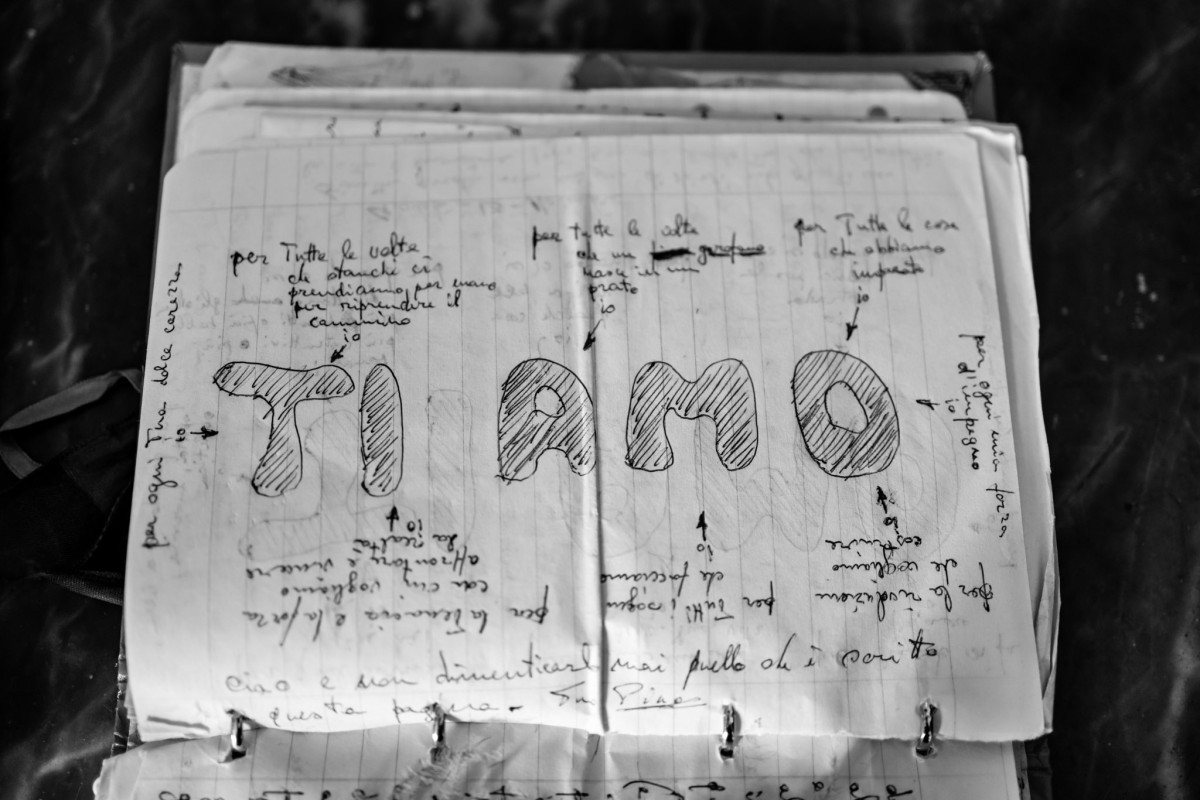 per Tutte le volte
che stanchi ci
prendiamo per mano
per riprendere il
cammino
io
per tutte le volte
che un garofano
nasce in un
prato
io
per Tutte le cose
che abbiamo
imparato
io
per ogni Tua dolce carezza
io
TI AMO
per ogni mia forza
d'impegno
io
per la Tenacia e la forza
con cui vogliamo
affrontare e vincere
la realtà
io
per TuTTi i sogni
che facciamo
io
per la rivoluzione
che vogliamo
costruire
io
Ciao e non dimenticarti mai quello che è scritto
questa pagina.